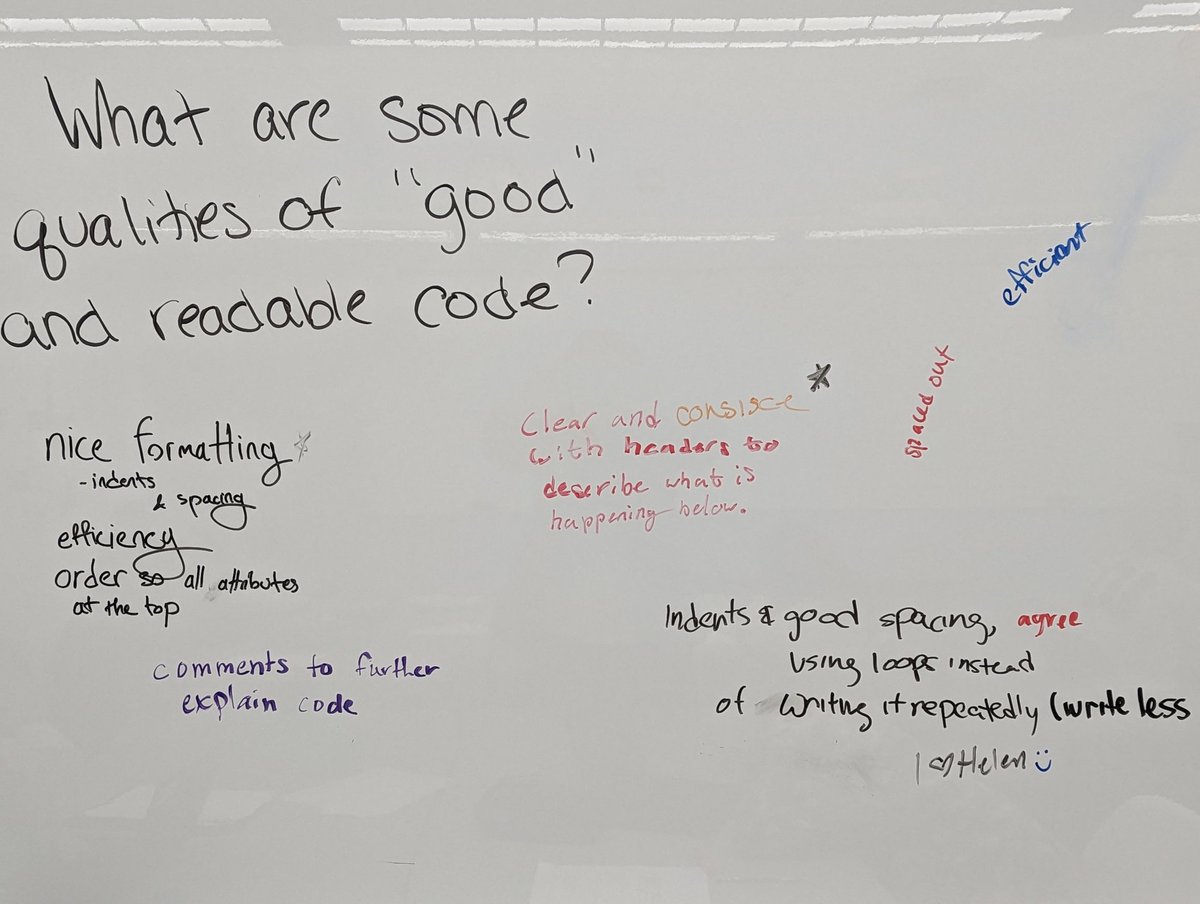 What are some
qualities of "good"
and readable code?
efficient
spaced out
nice formatting
- indents
& spacing
efficiency
order so all attributes
at the top
Clear and consisce
with headers to
describe what is
happening below.
comments to further
explain code
Indents & good spacing, agree
using loops instead
of writing it repeatedly (write less
I ♡ Helen :)